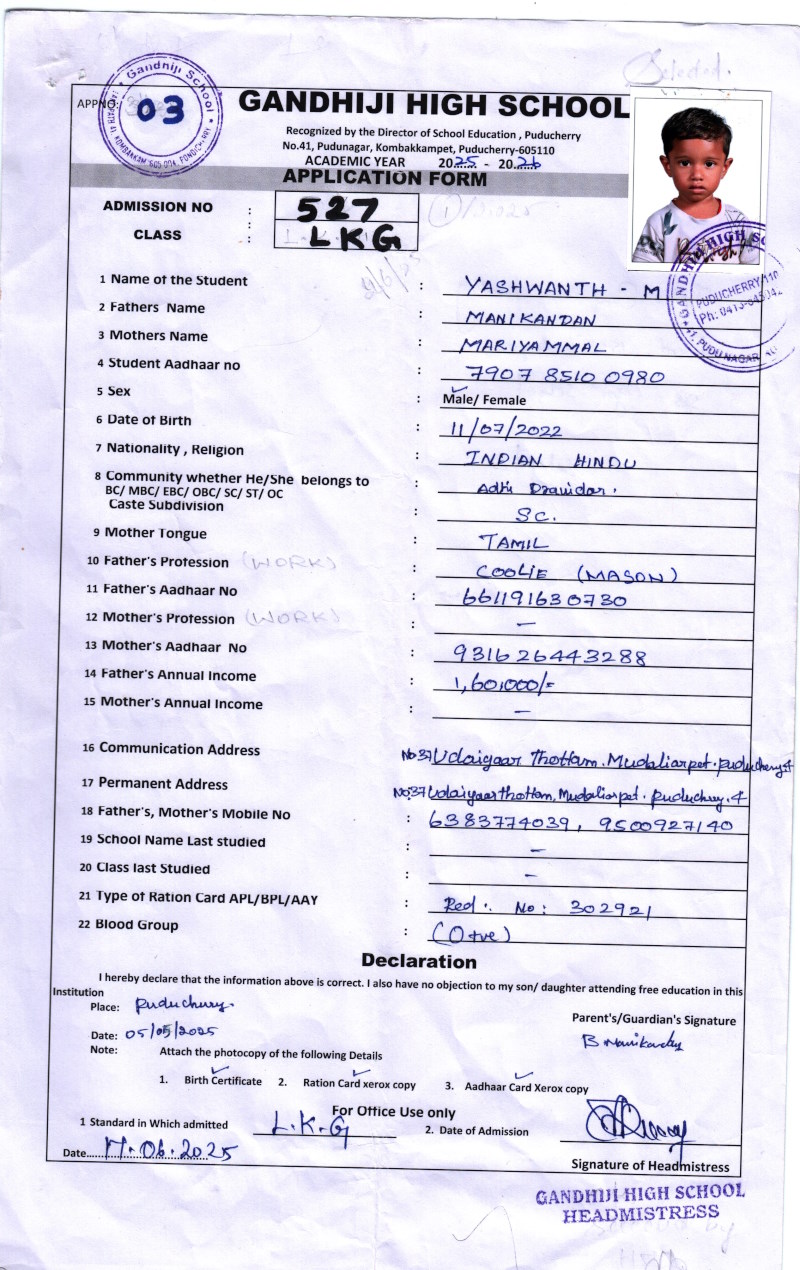 Selected.
APPNO:
03
Gandhiji School
GANDHIJI HIGH SCHOOL
Recognized by the Director of School Education , Puducherry
No.41, Pudunagar, Kombakkampet, Puducherry-605110
ACADEMIC YEAR 2025 - 2026
APPLICATION FORM
ADMISSION NO : 527
CLASS : LKG
1 Name of the Student : YASHWANTH - M
2 Fathers Name : MANIKANDAN
3 Mothers Name : MARIYAMMAL
4 Student Aadhaar no : 7907 8510 0980
5 Sex : Male/ Female
6 Date of Birth : 11/07/2022
7 Nationality , Religion : INDIAN HINDU
8 Community whether He/She belongs to : Adhi Dravidar.
BC/ MBC/ EBC/ OBC/ SC/ ST/ OC
Caste Subdivision : SC.
9 Mother Tongue : TAMIL
10 Father's Profession (WORK) : COOLIE (MASON)
11 Father's Aadhaar No : 661191630730
12 Mother's Profession (WORK) : –
13 Mother's Aadhaar No : 931626443288
14 Father's Annual Income : 1,60,000/=
15 Mother's Annual Income : –
16 Communication Address No 37 Udaiyaar Thottam. Mudaliarpet. puducherry 4
17 Permanent Address No:37 Udaiyaar thottam, Mudaliarpet. puducherry. 4
18 Father's, Mother's Mobile No : 6383774039, 9500927140
19 School Name Last studied : –
20 Class last Studied : –
21 Type of Ration Card APL/BPL/AAY : Red . No: 302921
22 Blood Group : (O+ve)
Declaration
I hereby declare that the information above is correct. I also have no objection to my son/ daughter attending free education in this
Institution
Place: puducherry.
Parent's/Guardian's Signature
Date: 05/05/2025
B Manikandan
Note: Attach the photocopy of the following Details
1. Birth Certificate 2. Ration Card xerox copy 3. Aadhaar Card Xerox copy
For Office Use only
1 Standard in Which admitted L.K.G 2. Date of Admission
Date......17.06.2025
Signature of Headmistress
GANDHIJI HIGH SCHOOL
HEADMISTRESS